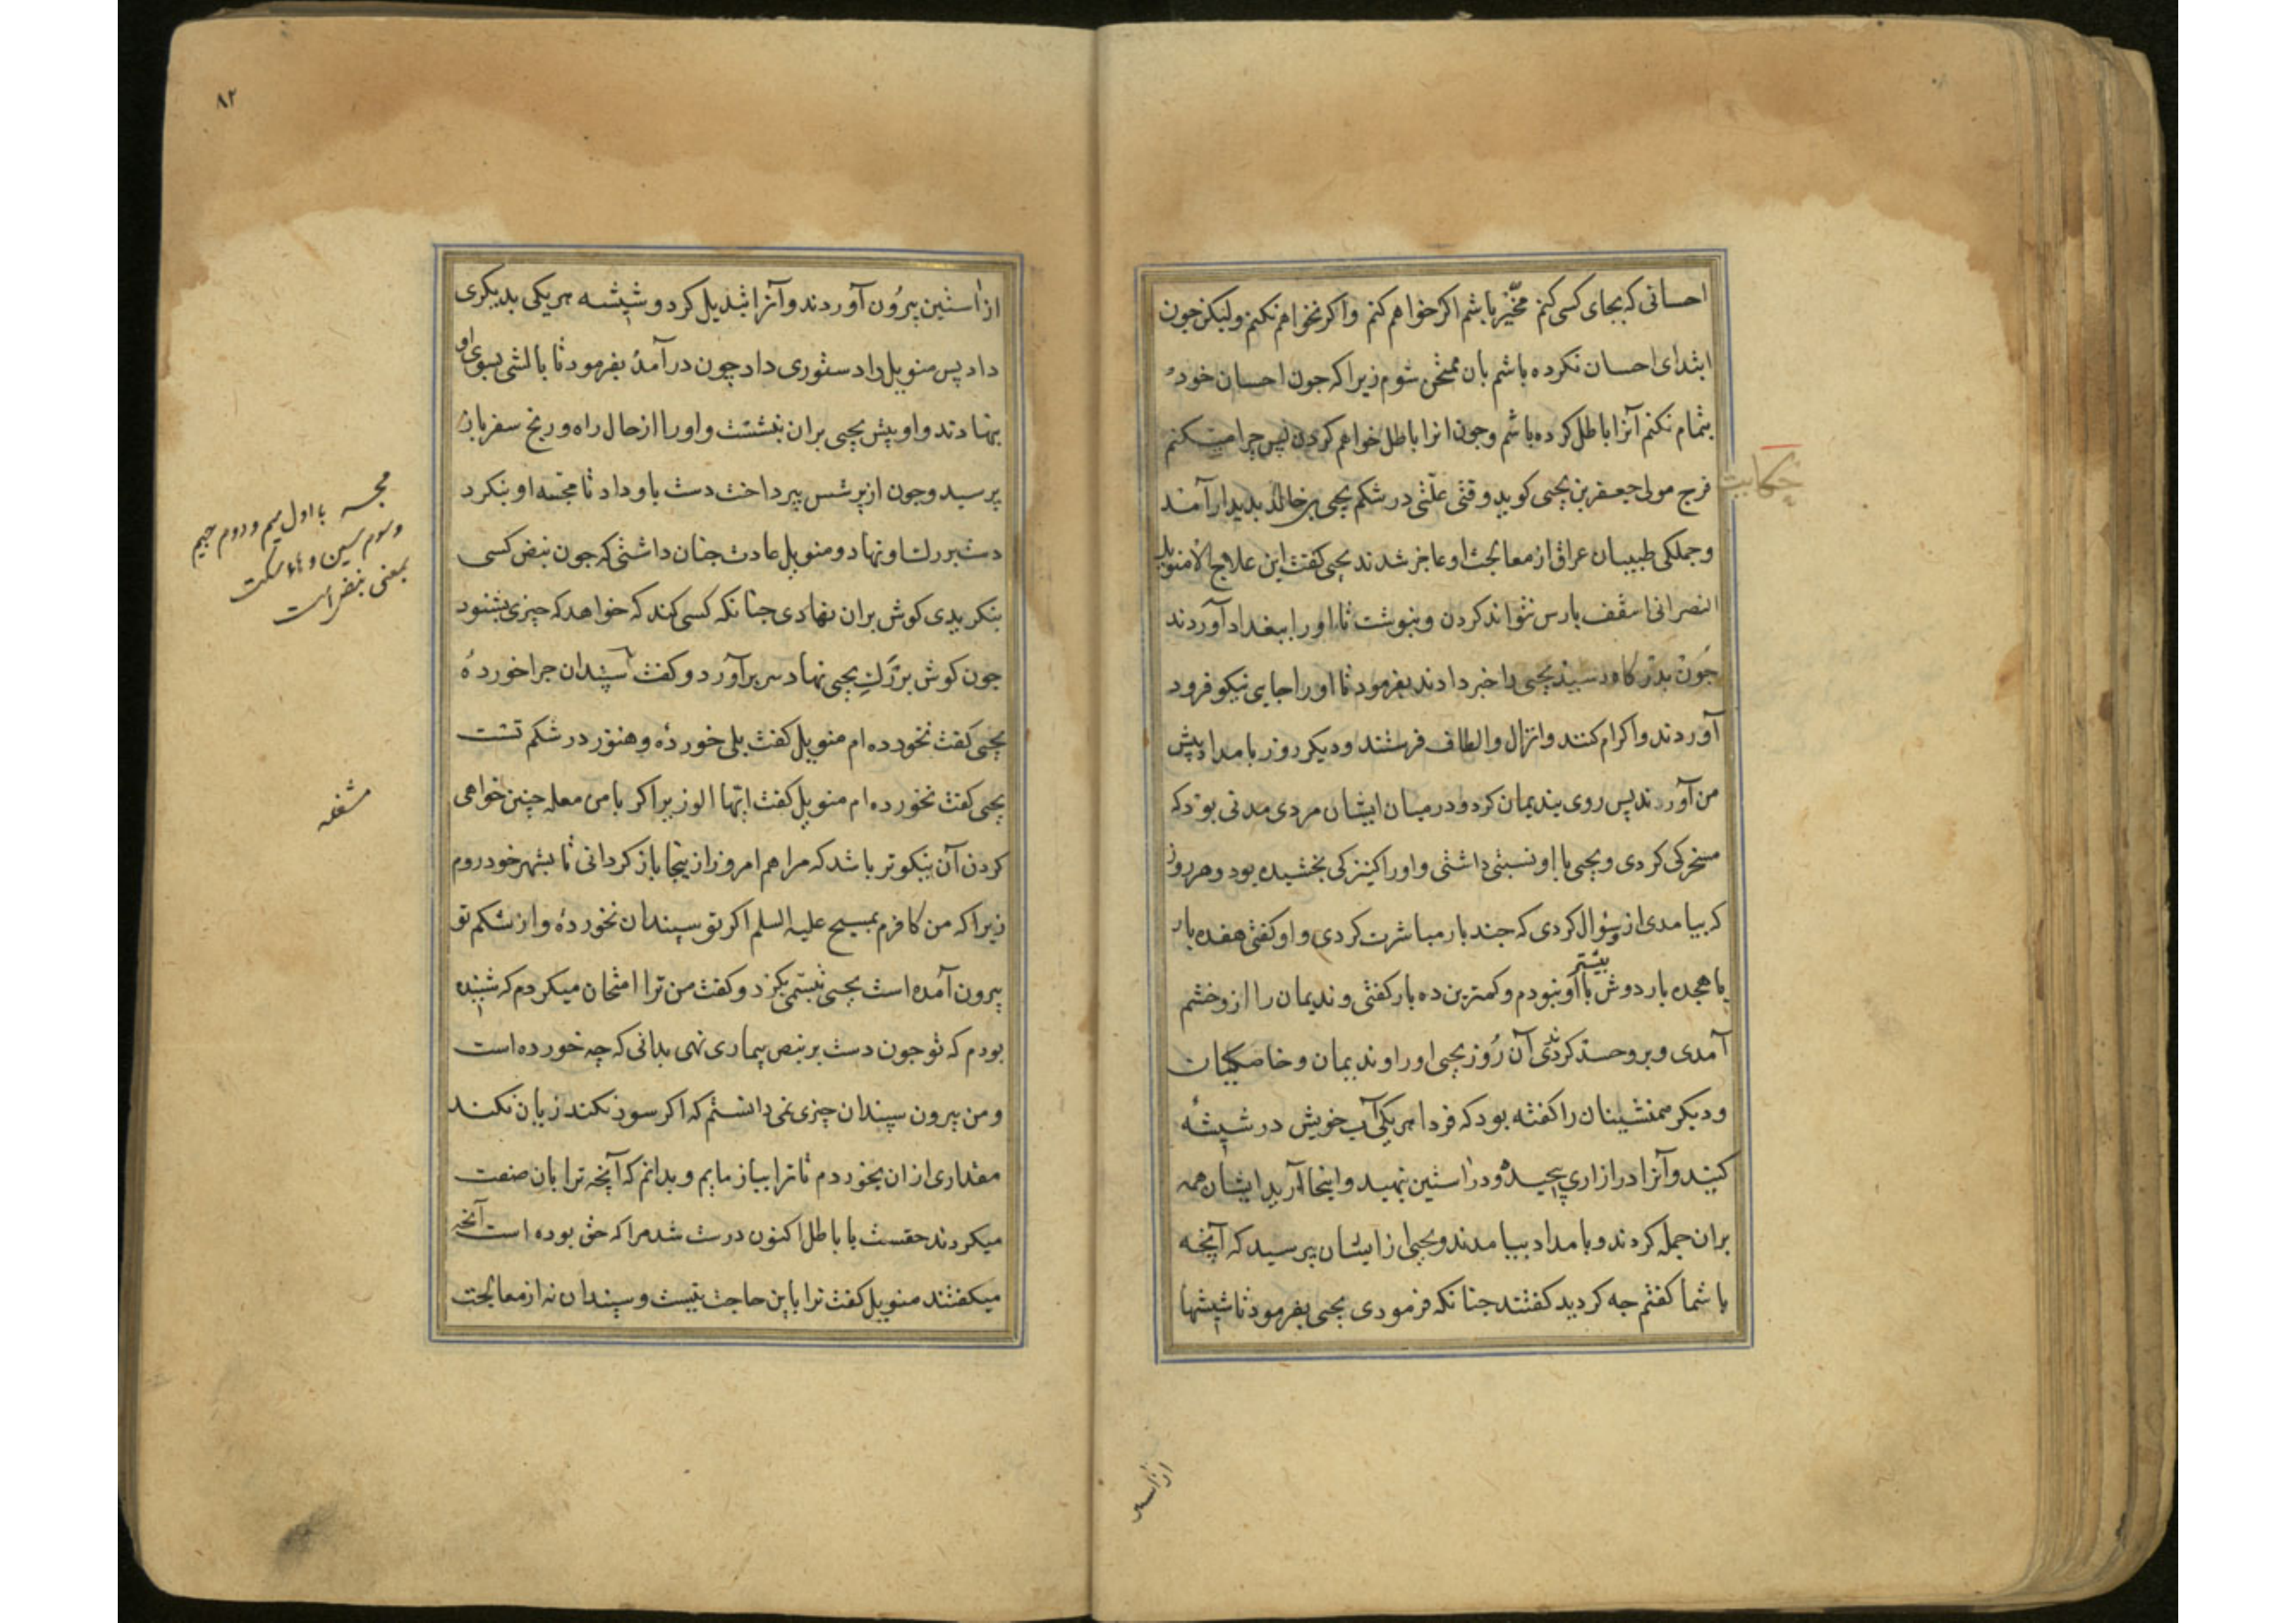 احسانی که بجای کسی کنم مخیّر باشم اکر خواهم کنم واکر نخواهم نکنم ولیکن جون
ابتدای احسان نکرده باشم بان ممتحن شوم زیرا که جون احسان خود
بتمام نکنم آنرا باطل کرده باشم وجون انرا باطل خواهم کردن پس چرا میکنم
حکایت
فرج مولی جعفر بن یحیی کوید وقتی علّتی در شکم یحیی بن خالد بدیدار آمد
وجملکی طبیبان عراق از معالجت او عاجز شدند یحیی کفت این علاج الا منویل
النصرانی اسقف بارس نتواند کردن وبنوشت تا اورا ببغداد آوردند
جون بدرکاه رسید یحیی را خبر دادند بفرمود تا اورا جایی نیکو فرود
آوردند واکرام کنند وانزال والطاف فرستند ودیکر روز بامداد پیش
من آورند پس روی بندیمان کرد ودر میان ایشان مردی مدنی بود که
مسخرکی کردی ویحیی با او نسبتی داشتی واورا کنیزکی بخشیده بود وهر روز
که بیامدی از و سؤال کردی که جند بار مباشرت کردی واو کفتی هفده بار
یا هجده بار دوش با او بیشتر نبودم وکمترین ده بار کفتی وندیمان را ازو خشم
آمدی وبرو حسد کردندی آن روز یحیی اورا وندیمان وخاصکیان
ودیکر همنشینان را کفته بود که فردا هریکی آب خویش در شیشهٔ
کنید وآنرا در ازاری پیچیده ودر آستین نهید واینجا آرید ایشان همه
بران جمله کردند وبامداد بیامدند ویحیی از ایشان بپرسید که آنچه
با شما کفتم جه کردید کفتند جنانکه فرمودی یحیی بفرمود تا شیشها
از آستین
۸۲
از آستین بیرون آوردند وآنرا تبدیل کرد وشیشه هر یکی بدیکری
داد پس منویل را دستوری داد چون درآمد بفرمود تا بالشی بسوی او
بنهادند واو پیش یحیی بران بنشست واورا از حال راه ورنج سفر باز
پرسید وجون از پرسش بپرداخت دست باو داد تا مجسه او بنکرد
دست بر رک او نهاد ومنویل عادت جنان داشتی که جون نبض کسی
بنکریدی کوش بران نهادی جنانکه کسی کند که خواهد که چیزی بشنود
جون کوش بر رک یحیی نهاد سر برآورد وکفت سپندان جرا خوردهٔ
یحیی کفت نخورده ام منویل کفت بلی خوردهٔ وهنوز در شکم تست
یحیی کفت نخورده ام منویل کفت ایّها الوزیر اکر با من معامله چنین خواهی
کردن آن نیکوتر باشد که مرا هم امروز از ینجا باز کردانی تا بشهر خود روم
زیرا که من کافرم بمسیح علیه السلم اکر تو سپندان نخوردهٔ واز شکم تو
بیرون آمده است یحیی تبسّمی بکرد وکفت من ترا امتحان میکردم که شنیده
بودم که تو جون دست بر نبض بیماری نهی بدانی که چه خورده است
ومن بیرون سپندان چیزی نمی دانستم که اکر سود نکند زیان نکند
مقداری از ان بخوردم تا ترا بیازمایم وبدانم که آنچه ترا بان صفت
میکردند حقست یا باطل اکنون درست شد مرا که حق بوده است آنچه
میکفتند منویل کفت ترا باین حاجت نیست وسپندان نه از معالجت
مجسه با اول میم و دوم جیم
و سوم سین و هاء سکت
بمعنی نبض است